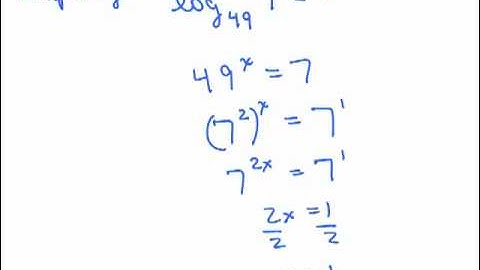 log₄₉
49ˣ = 7
(7²)ˣ = 7¹
7²ˣ = 7¹
2x/2 = 1/2